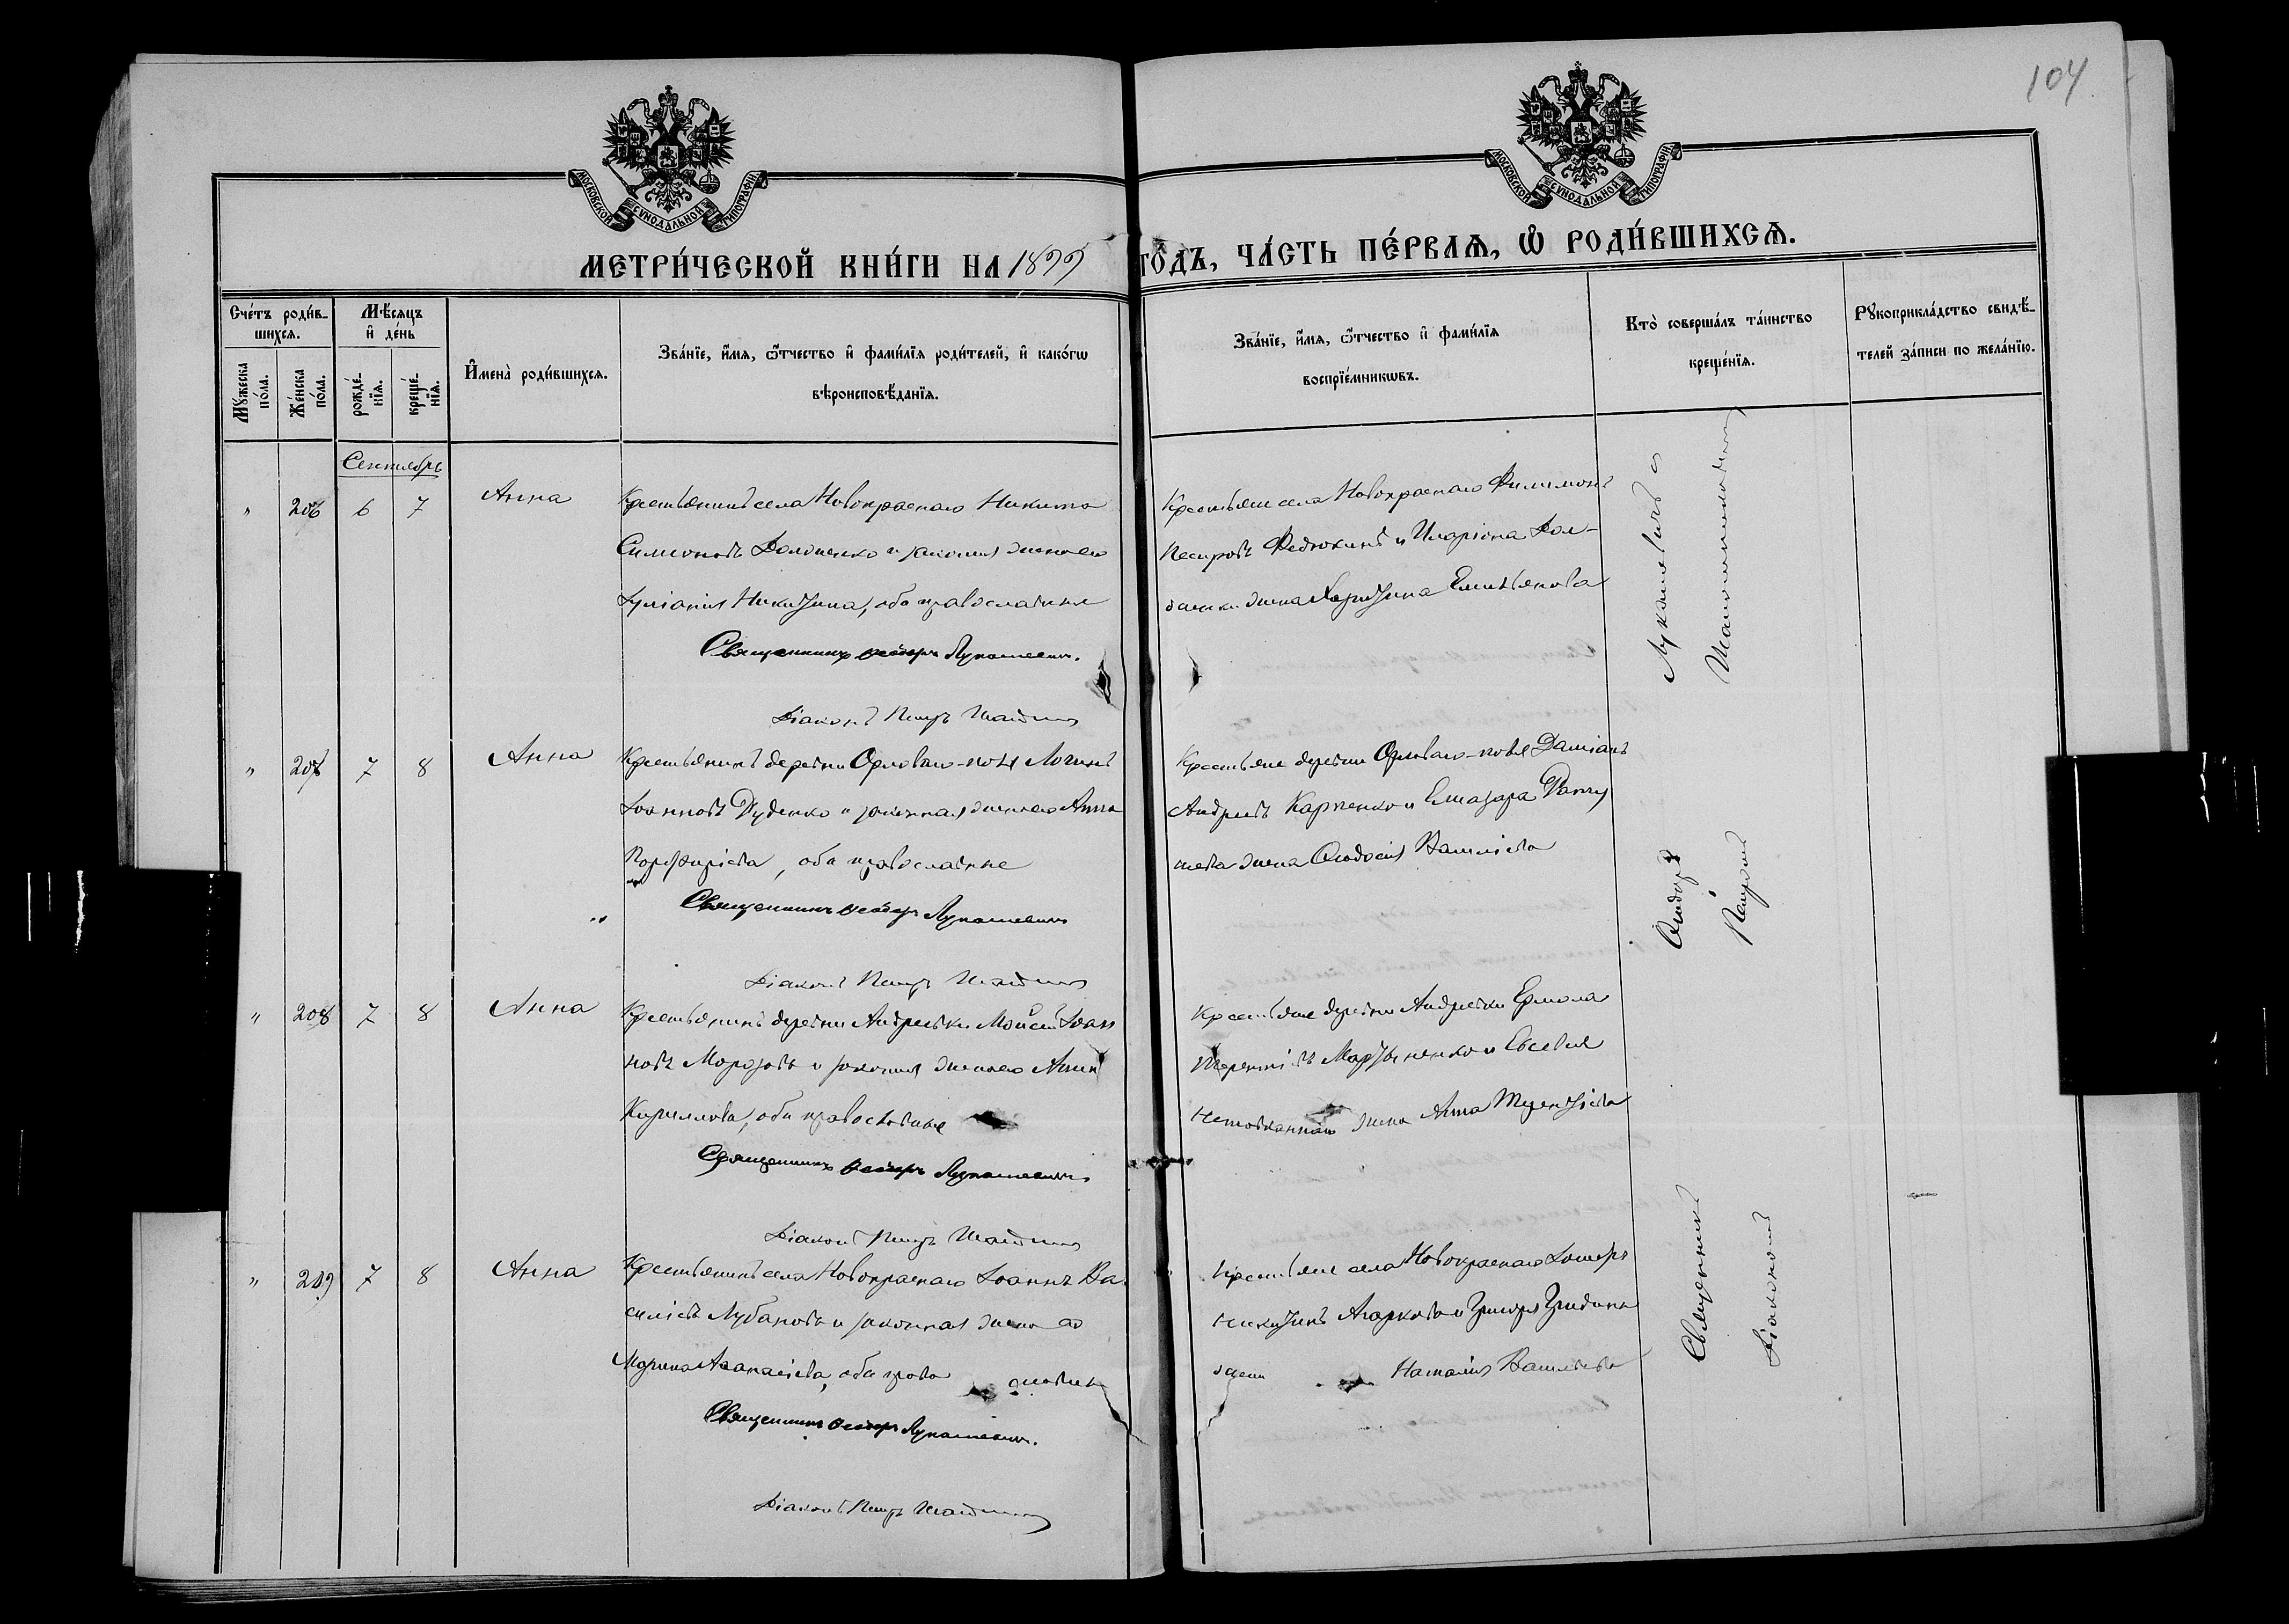 104
МОСКОВСКОЙ СУНОДАЛЬНОЙ ТИПОГРАФІИ
МОСКОВСКОЙ СУНОДАЛЬНОЙ ТИПОГРАФІИ
МЕТРИ́ЧЕСКОЙ КНИ́ГИ НА 1899 ГО́ДЪ, ЧА́СТЬ ПЕ́РВАѦ, Ѽ РОДИ́ВШИХСѦ.
Сче́тъ роди́в-
шихся.
Мꙋ́жеска по́ла.
Же́нска по́ла.
Мѣ́сяцъ и҆ де́нь
рожде́-нїя.
креще́-нїя.
И҆мена̀ роди́вшихся.
Зва́нїе, и҆́мя, ѻ҆́тчество и҆ фами́лїя роди́телей, и҆ како́гѡ
вѣроисповѣ́данїя.
Зва́нїе, и҆́мя, ѻ҆́тчество и҆ фами́лїя
воспрїе́мникѡвъ.
Кто̀ соверша́лъ та́инство
креще́нїя.
Рꙋкоприкла́дство свидѣ́-
телей за́писи по жела́нїю.
Сентябрь
" 206 6 7 Анна
Крестьянинъ села Новокраснаго Никита
Симеоновъ и законная жена его
Іуліанія Никитина, оба православные
Священникъ Ѳеодоръ Лукашевичъ.
Діаконъ Петръ
Крестьяне села Новокраснаго Филимонъ
Ѳедюкинъ и Иларіона Дол-
жена Харитина Емельянова
" 207 7 8 Анна
Крестьянинъ деревни Орловаго-поля Логинъ
Іоанновъ Руденко и законная жена его Анна
Порфиріева, оба православные
Священникъ Ѳеодоръ Лукашевичъ
Діаконъ Петръ
Крестьяне деревни Орловаго-поля Даміанъ
Андреевъ Карпенко и Елиазара
жена Ѳеодосія Васильева
" 208 7 8 Анна
Крестьянинъ деревни Андреевки Мойсей Іоан
новъ Морозовъ и законная жена его Анна
Кириллова, оба православные
Священникъ Ѳеодоръ Лукашевичъ
Діаконъ Петръ
Крестьяне деревни Андреевки Ермола
Терентіевъ Мартыненко и Евсевія
жена Анна Терентіева
" 209 7 8 Анна
Крестьянинъ села Новокраснаго Іоаннъ Ва
силіевъ Лубановъ и законная жена его
Марина Аѳанасіева, оба православные
Священникъ Ѳеодоръ Лукашевичъ.
Діаконъ Петръ
Крестьяне села Новокраснаго Іосифъ
Никитинъ Агарковъ и Григорія
жена Наталія Васильева
Священникъ Ѳеодоръ Лукашевичъ и
Діаконъ Петръ